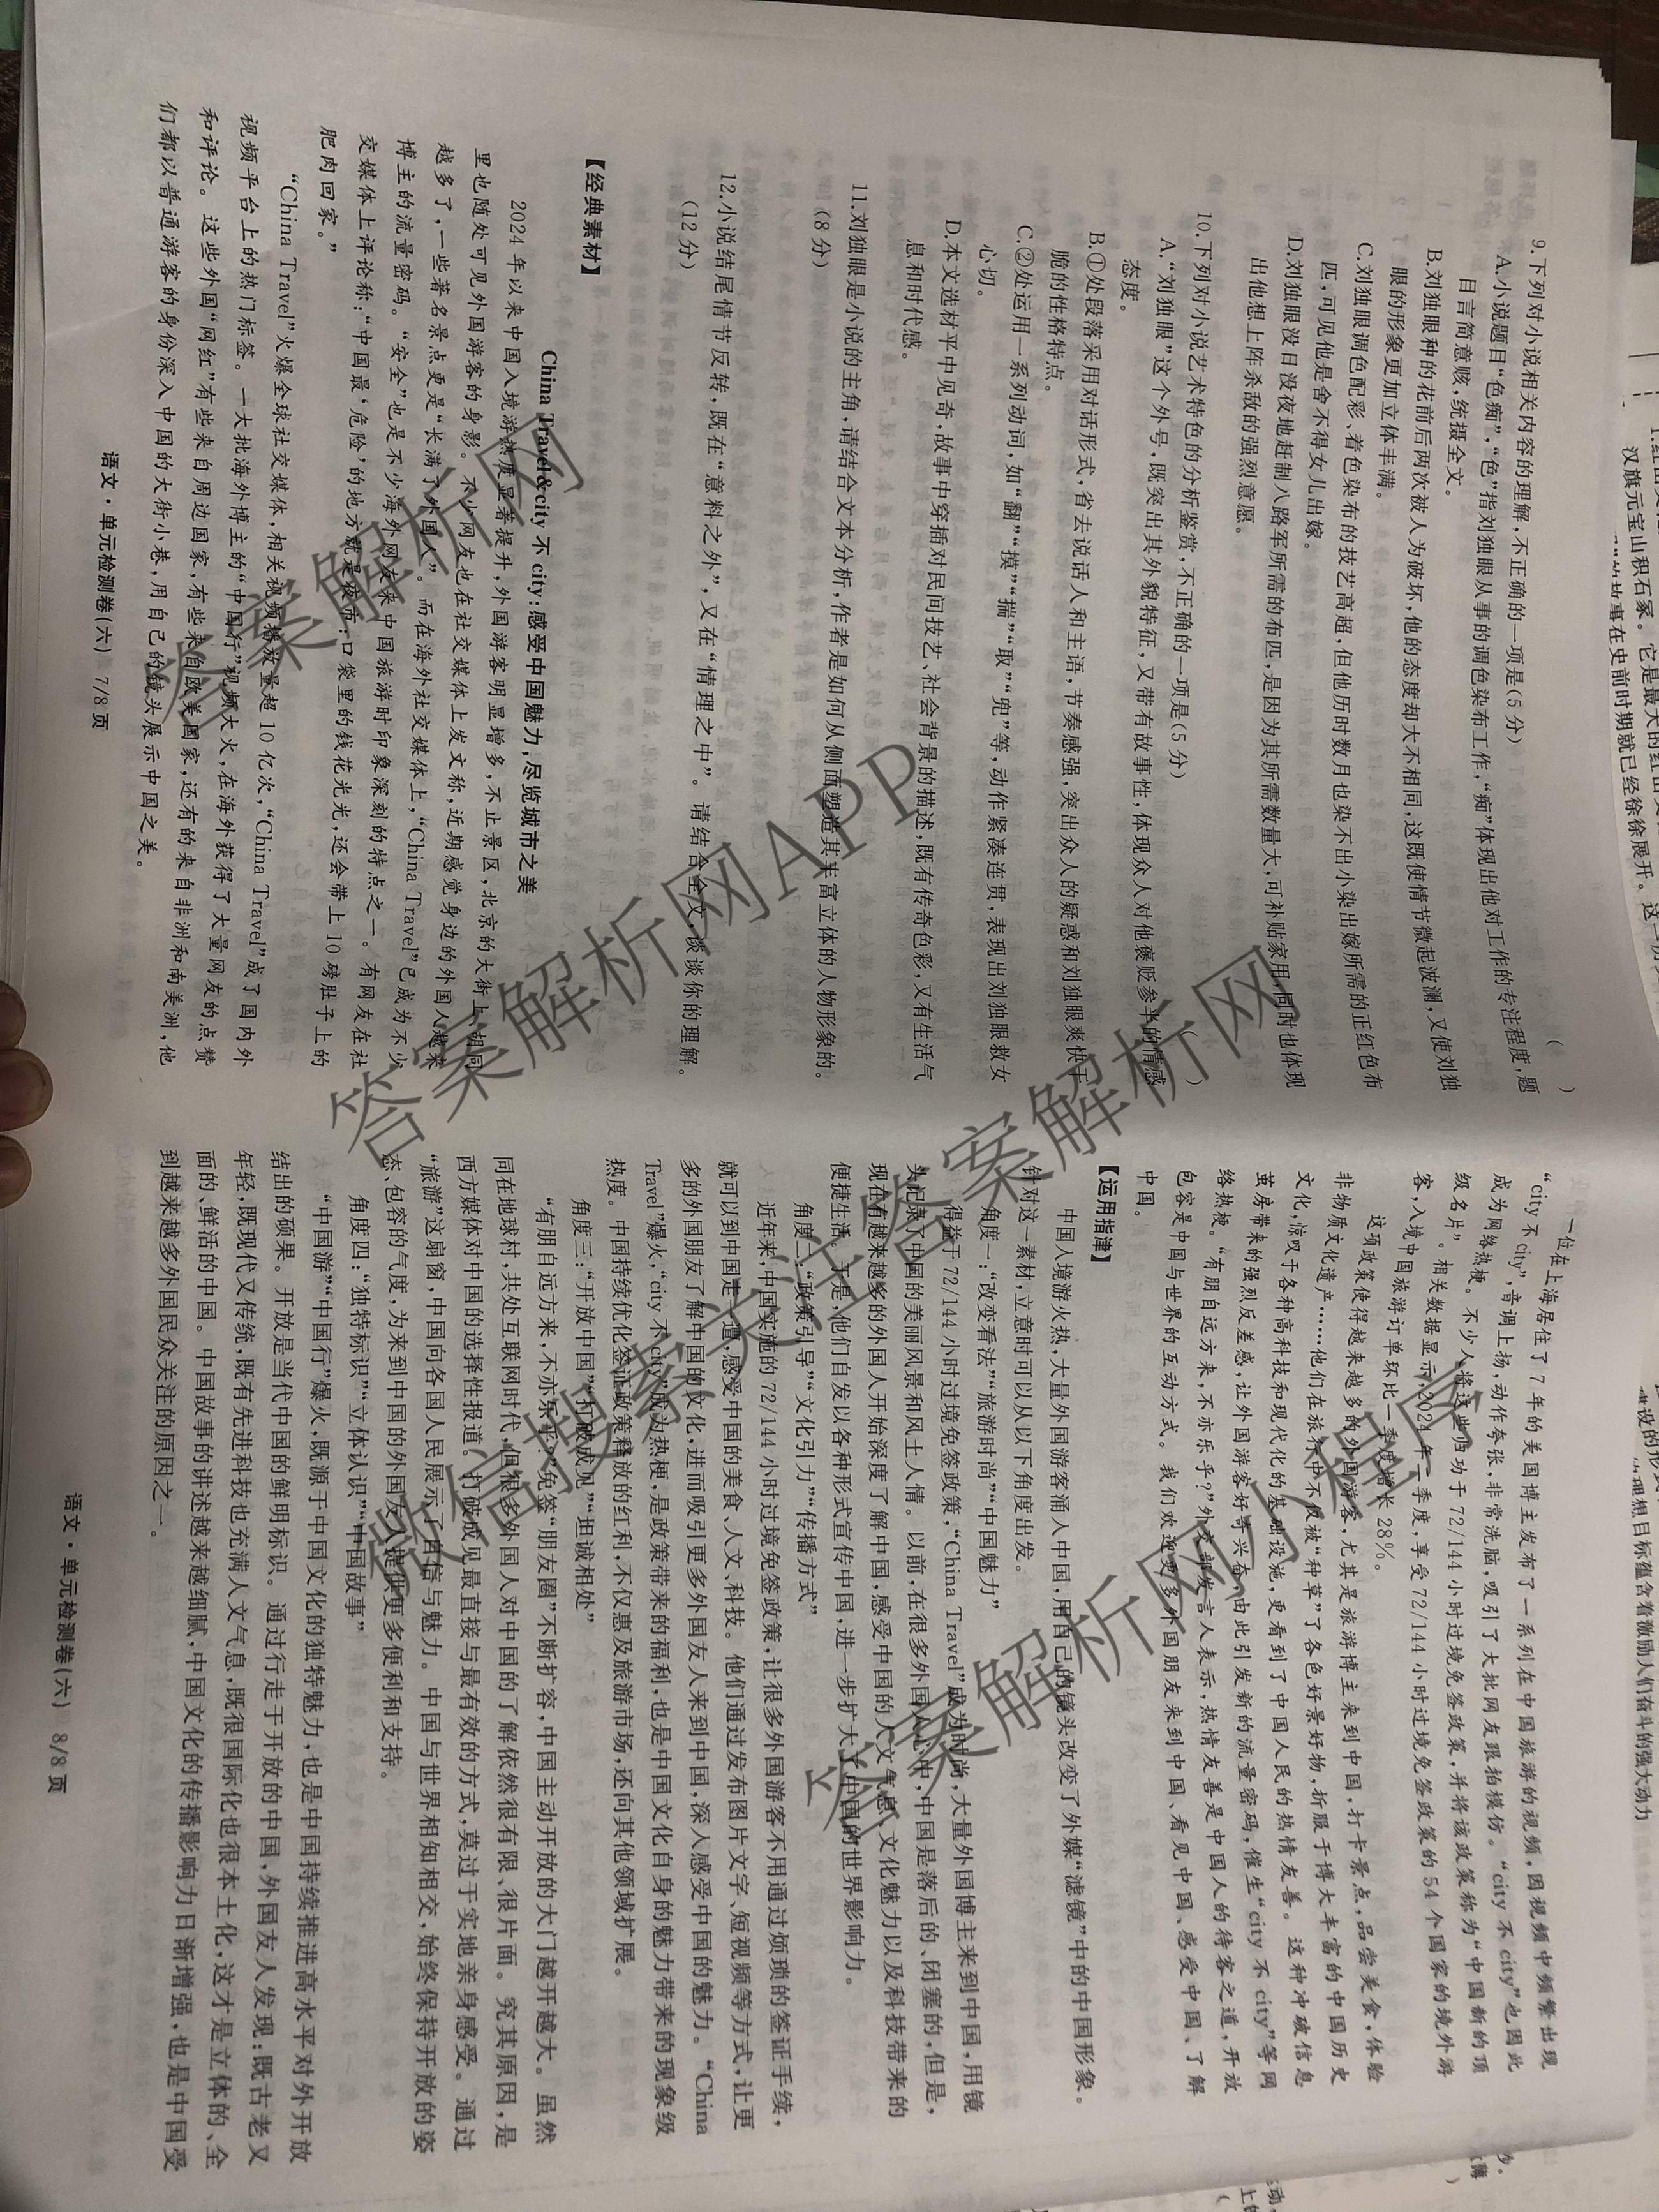 9.下列对小说相关内容的理解,不正确的一项是(5分) ( )
A.小说题目“色痴”,“色”指刘独眼从事的调色染布工作,“痴”体现出他对工作的专注程度,题
目言简意赅,统摄全文。
B.刘独眼种的花前后两次被人为破坏,他的态度却大不相同,这既使情节微起波澜,又使刘独
眼的形象更加立体丰满。
C.刘独眼调色配彩、着色染布的技艺高超,但他历时数月也染不出小染出嫁所需的正红色布
匹,可见他是舍不得女儿出嫁。
D.刘独眼没日没夜地赶制八路军所需的布匹,是因为其所需数量大,可补贴家用,同时也体现
出他想上阵杀敌的强烈意愿。
10.下列对小说艺术特色的分析鉴赏,不正确的一项是(5分) ( )
A.“刘独眼”这个外号,既突出其外貌特征,又带有故事性,体现众人对他褒贬参半的情感
态度。
B.①处段落采用对话形式,省去说话人和主语,节奏感强,突出众人的疑惑和刘独眼爽快干
脆的性格特点。
C.②处运用一系列动词,如“翻”“摸”“揣”“取”“兜”等,动作紧凑连贯,表现出刘独眼救女
心切。
D.本文选材平中见奇,故事中穿插对民间技艺、社会背景的描述,既有传奇色彩,又有生活气
息和时代感。
11.刘独眼是小说的主角,请结合文本分析,作者是如何从侧面塑造其丰富立体的人物形象的。
(8分)
12.小说结尾情节反转,既在“意料之外”,又在“情理之中”。请结合全文,谈谈你的理解。
(12分)
【经典素材】
China Travel&city不city:感受中国魅力,尽览城市之美
2024年以来中国入境游热度显著提升,外国游客明显增多,不止景区,北京的大街上、胡同
里也随处可见外国游客的身影。不少网友也在社交媒体上发文称,近期感觉身边的外国人越来
越多了,一些著名景点更是“长满了外国人”。而在海外社交媒体上,“China Travel”已成为不少
博主的流量密码。“安全”也是不少海外网友来中国旅游时印象深刻的特点之一。有网友在社
交媒体上评论称:“中国最‘危险’的地方就是夜市:口袋里的钱花光光,还会带上10磅肚子上的
肥肉回家。”
“China Travel”火爆全球社交媒体,相关视频播放量超10亿次,“China Travel”成了国内外
视频平台上的热门标签。一大批海外博主的“中国行”视频大火,在海外获得了大量网友的点赞
和评论。这些外国“网红”有些来自周边国家,有些来自欧美国家,还有的来自非洲和南美洲,他
们都以普通游客的身份深入中国的大街小巷,用自己的镜头展示中国之美。
语文·单元检测卷(六) 7/8页
一位在上海居住了7年的美国博主发布了一系列在中国旅游的视频,因视频中频繁出现
“city不city”,音调上扬,动作夸张,非常洗脑,吸引了大批网友跟拍模仿。“city不city”也因此
成为网络热梗。不少人将这些归功于72/144小时过境免签政策,并将该政策称为“中国新的顶
级名片”。相关数据显示,2024年一季度,享受72/144小时过境免签政策的54个国家的境外游
客,入境中国旅游订单环比一季度增长28%。
这项政策使得越来越多的外国游客,尤其是旅游博主来到中国,打卡景点,品尝美食,体验
非物质文化遗产……他们在旅行中不仅被“种草”了各色好景好物,折服于博大丰富的中国历史
文化,惊叹于各种高科技和现代化的基础设施,更看到了中国人民的热情友善。这种冲破信息
茧房带来的强烈反差感,让外国游客好奇兴奋,由此引发新的流量密码,催生“city不city”等网
络热梗。“有朋自远方来,不亦乐乎?”外交部发言人表示,热情友善是中国人的待客之道,开放
包容是中国与世界的互动方式。我们欢迎更多外国朋友来到中国、看见中国、感受中国、了解
中国。
【运用指津】
中国入境游火热,大量外国游客涌入中国,用自己的镜头改变了外媒“滤镜”中的中国形象。
针对这一素材,立意时可以从以下角度出发。
角度一:“改变看法”“旅游时尚”“中国魅力”
得益于72/144小时过境免签政策,“China Travel”成为时尚,大量外国博主来到中国,用镜
头记录了中国的美丽风景和风土人情。以前,在很多外国人心中,中国是落后的、闭塞的,但是,
现在有越来越多的外国人开始深度了解中国,感受中国的人文气息、文化魅力以及科技带来的
便捷生活。于是,他们自发以各种形式宣传中国,进一步扩大了中国的世界影响力。
角度二:“政策引导”“文化引力”“传播方式”
近年来,中国实施的72/144小时过境免签政策,让很多外国游客不用通过烦琐的签证手续,
就可以到中国走一遭,感受中国的美食、人文、科技。他们通过发布图片文字、短视频等方式,让更
多的外国朋友了解中国的文化,进而吸引更多外国友人来到中国,深入感受中国的魅力。“China
Travel”爆火,“city不city”成为热梗,是政策带来的福利,也是中国文化自身的魅力带来的现象级
热度。中国持续优化签证政策释放的红利,不仅惠及旅游市场,还向其他领域扩展。
角度三:“开放中国”“打破成见”“坦诚相处”
“有朋自远方来,不亦乐乎?”免签“朋友圈”不断扩容,中国主动开放的大门越开越大。虽然
同在地球村,共处互联网时代,但很多外国人对中国的了解依然很有限、很片面。究其原因,是
西方媒体对中国的选择性报道。打破成见最直接与最有效的方式,莫过于实地亲身感受。通过
“旅游”这扇窗,中国向各国人民展示了自信与魅力。中国与世界相知相交,始终保持开放的姿
态、包容的气度,为来到中国的外国友人提供更多便利和支持。
角度四:“独特标识”“立体认识”“中国故事”
“中国游”“中国行”爆火,既源于中国文化的独特魅力,也是中国持续推进高水平对外开放
结出的硕果。开放是当代中国的鲜明标识。通过行走于开放的中国,外国友人发现:既古老又
年轻,既现代又传统,既有先进科技也充满人文气息,既很国际化也很本土化,这才是立体的、全
面的、鲜活的中国。中国故事的讲述越来越细腻,中国文化的传播影响力日渐增强,也是中国受
到越来越多外国民众关注的原因之一。
语文·单元检测卷(六) 8/8页
答案解析网
答案解析网APP
答案解析网
答案解析网